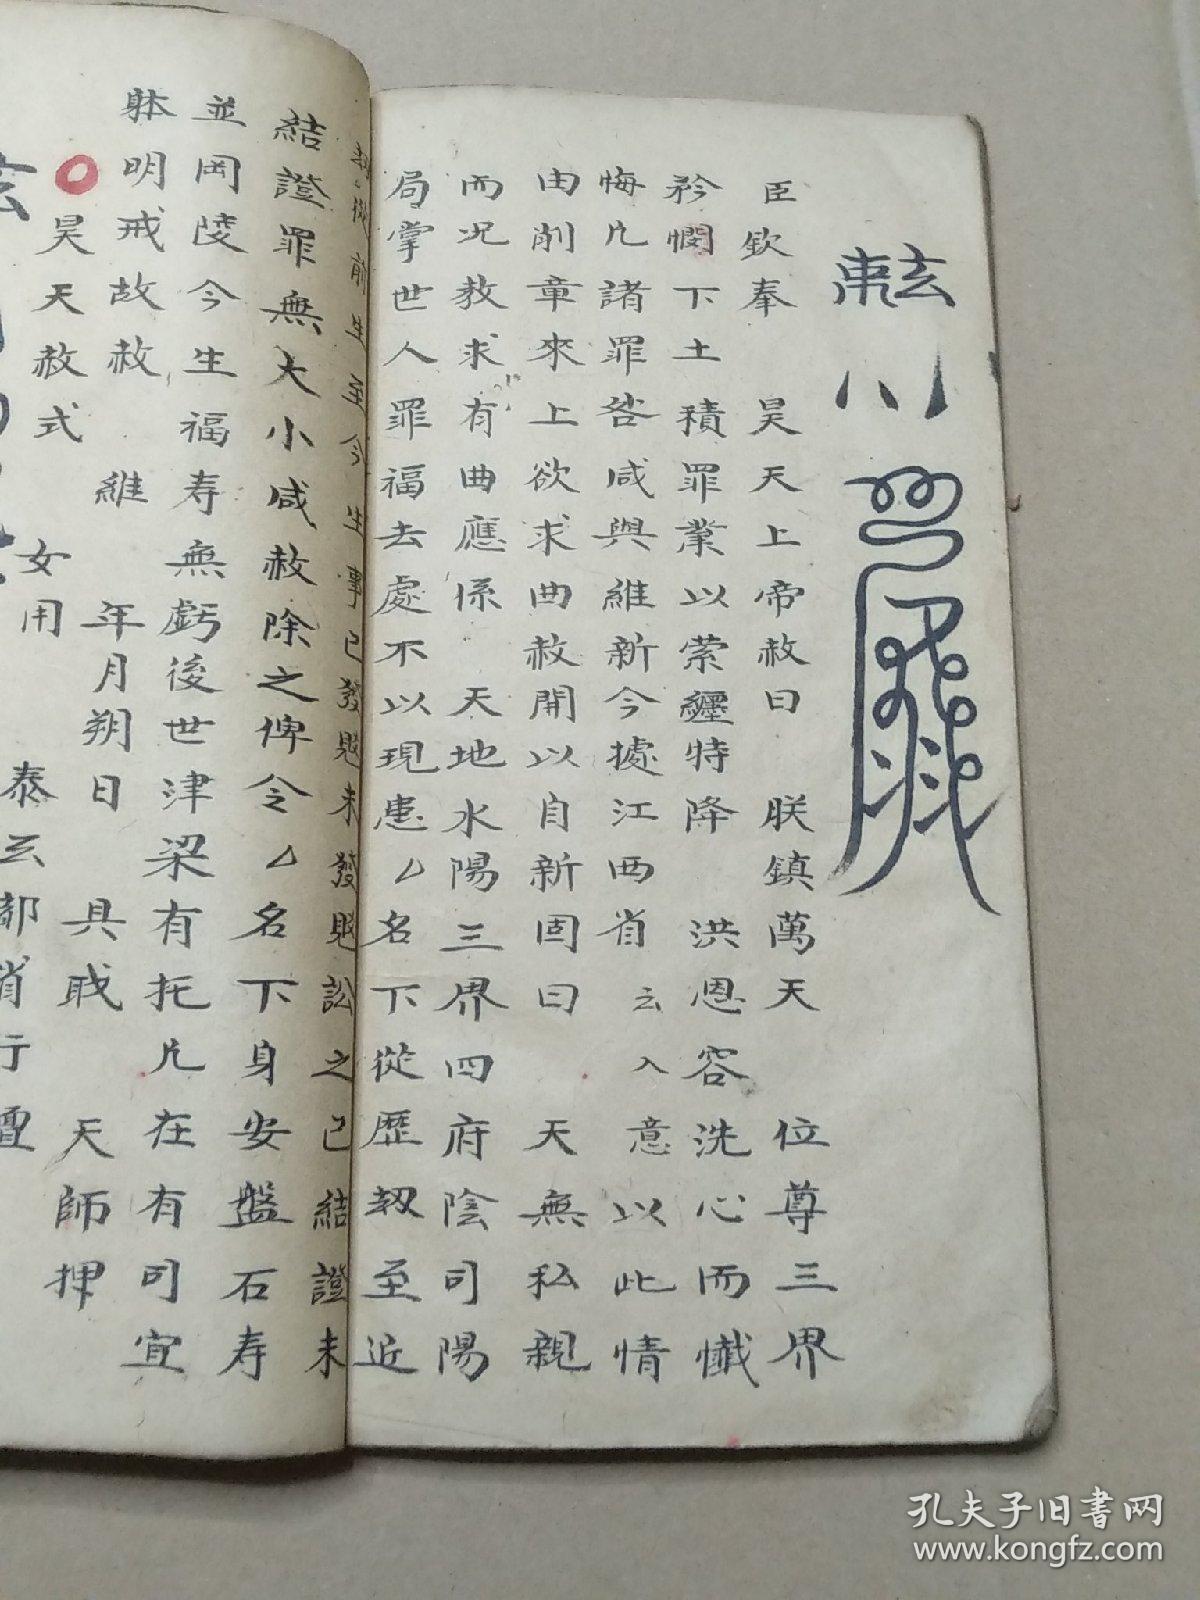 臣欽奉　昊天上帝赦曰　朕鎮萬天　位尊三界
矜憫下土積罪業以縈纏特降　洪恩容洗心而懺
悔凢諸罪咎咸與維新今據江西省云入意以此情
由削章來上欲求曲赦開以自新固曰　天無私親
而况教求有曲應係　天地水陽三界四府陰司陽
局掌世人罪福去處不以現患厶名下從歷刼至近
刼從前生至今生事已發覺未發覺訟之已結證未
結證罪無大小咸赦除之俾令厶名下身安盤石寿
並岡陵今生福寿無虧後世津梁有托凢在有司宜
躰明戒故赦　維　年月朔日　具戝　天師押
昊天赦式　女用　泰云部省行壇
孔夫子旧书网
www.kongfz.com